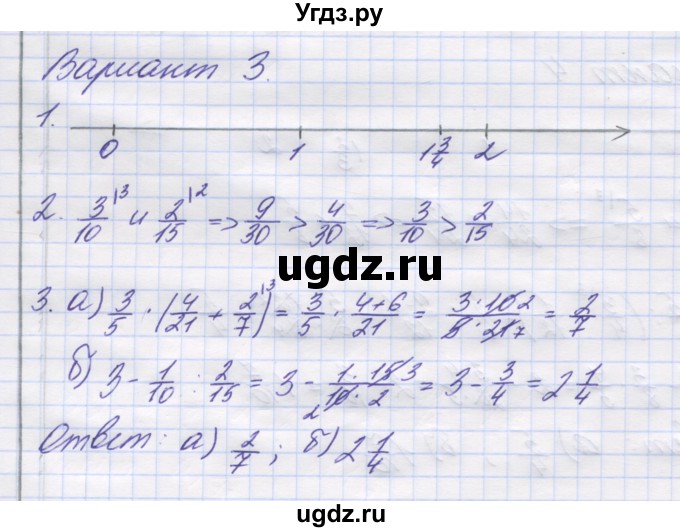 Угдз.ру
Вариант 3.
1.
0 1 1 3/4 2
2. 3/10 |3 и 2/15 |2 => 9/30 > 4/30 => 3/10 > 2/15
ugdz.ru
3. а) 3/5 · (4/21 + 2/7 |3) = 3/5 · (4+6)/21 = (3·10 2)/(5·21 7) = 2/7
б) 3 - 1/10 : 2/15 = 3 - (1·15 3)/(2 10·2) = 3 - 3/4 = 2 1/4
Ответ: а) 2/7; б) 2 1/4
ugdz.ru